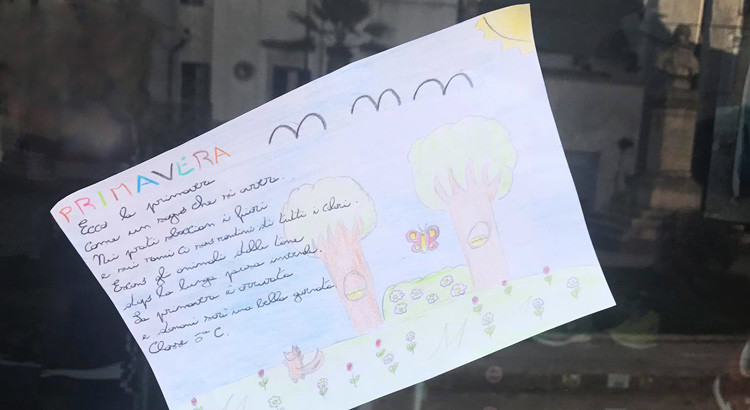 PRIMAVERA
Ecco la primavera
come un sogno che si avvera.
Nei prati sbocciano i fiori
e sui rami ci sono rondini di tutti i colori.
Escono gli animali dalle tane
dopo la lunga pausa invernale.
La primavera è arrivata
e domani sarà una bella giornata
Classe 5ª C.